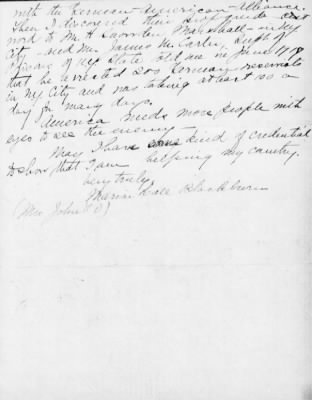 with the German-American-Alliance.
When I discovered their propaganda I sent
word to Mr. H Snowden Marshall - in NY
City - and Mr. James McCarley, Supt of
Prisons of NY State told me in June 1918
that he arrested 200 German reservists
in NY City and was taking at least 20 a
day for many days.
America needs more people with
eyes to see the enemy -
May I have some kind of Credential
to show that I am helping my country.
Very truly,
Marin Blackburn
(Mrs John